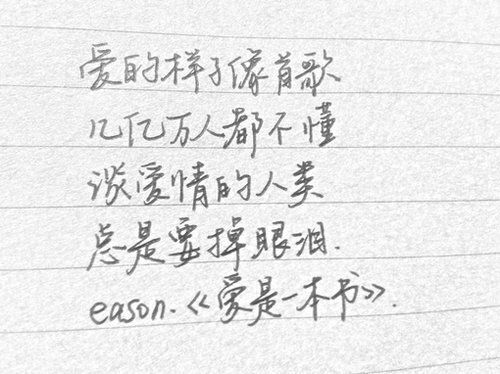 爱的样子像首歌
几亿万人都不懂
谈爱情的人类
总是要掉眼泪.
eason.《爱是一本书》.